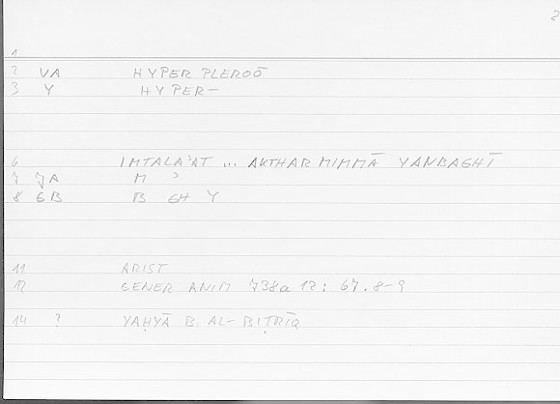 2
1
2 VA HYPER PLEROŌ
3 Y HYPER-
6 IMTALAʾAT ... AKTHAR MIMMĀ YANBAGHĪ
7 JA M ʾ
8 GB B GH Y
11 ARIST
12 GENER ANIM 738a 12: 67.8-9
14 ? YAḤYĀ B. AL-BIṬRĪQ